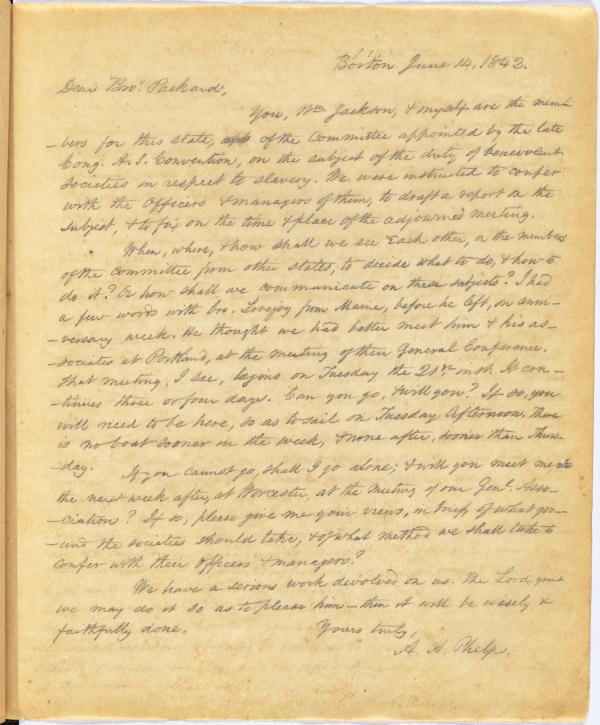 Boston June 14, 1842.
Dear Bro. Packard,
You, Wm Jackson, & myself are the mem-
-bers for this state, of the Committee appointed by the late
Cong. A. S. Convention, on the subject of the duty of benevolent
societies in respect to slavery. We were instructed to confer
with the Officers & managers of them, to draft a report on the
subject, & to fix on the time & place of the adjourned meeting.
When, where, & how shall we see each other, or the members
of the committee from other states, to decide what to do, & how to
do it? Or how shall we communicate on these subjects? I had
a few words with bro. Lovejoy from Maine, before he left, on anni-
-versary week. We thought we had better meet him & his as-
-sociates at Portland, at the meeting of their General Conference.
That meeting, I see, begins on Tuesday the 21st inst. It con-
-tinues three or four days. Can you go, & will you? If so, you
will need to be here, so as to sail on Tuesday afternoon. There
is no boat sooner in the week, & none after, sooner than Thurs-
-day. If you cannot go, shall I go alone; & will you meet me
the next week after, at Worcester, at the meeting of our Genl. Asso-
-ciation? If so, please give me your views, in brief, of what gro-
-und the societies should take, & of what method we shall take to
confer with their Officers & managers?
We have a serious work devolved on us. The Lord grant
we may do it so as to please him – then it will be wisely &
faithfully done. Yours truly,
A. A. Phelps.